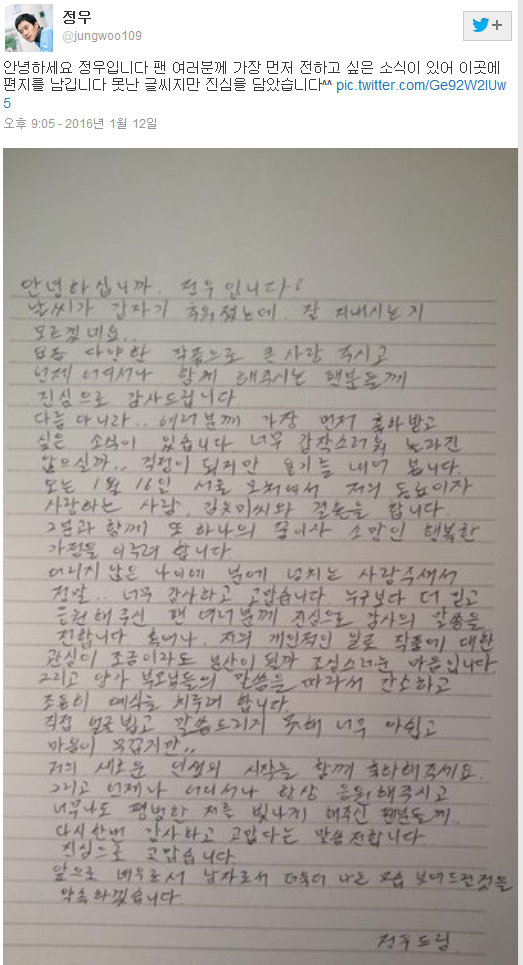 정우
@jungwoo109
안녕하세요 정우입니다 팬 여러분께 가장 먼저 전하고 싶은 소식이 있어 이곳에
편지를 남깁니다 못난 글씨지만 진심을 담았습니다^^ pic.twitter.com/Ge92W2lUw
5
오후 9:05 - 2016년 1월 12일
안녕하십니까. 정우입니다!
날씨가 갑자기 추워졌는데. 잘 지내시는지
모르겠네요..
다양한 작품으로 큰 사랑 주시고
언제 어디서나 함께 해주시는 팬분들께
진심으로 감사드립니다.
다름 아니라.. 여러분께 가장 먼저 축하받고
싶은 소식이 있습니다. 너무 갑작스러워 놀라진
않으실까.. 걱정이 되지만 용기를 내어 봅니다.
오는 1월 16일 서울 모처에서 저의 동료이자
사랑하는 사람, 김유미씨와 결혼을 합니다.
그분과 함께 또 하나의 꿈이자 소망인 행복한
가정을 이루려 합니다
어리지 않은 나이에 분에 넘치는 사랑주셔서
정말.. 너무 감사하고 고맙습니다. 누구보다 더 믿고
응원해주신 팬 여러분께 진심으로 감사의 말씀을
전합니다 혹시나. 저의 개인적인 일로 작품에 대한
관심이 조금이라도 분산이 될까 조심스러운 마음입니다.
그리고 양가 부모님들의 말씀을 따라서 간소하고
조용히 예식을 치루려 합니다.
직접 얼굴 뵙고 말씀드리지 못해 너무 아쉽고
마음이 무겁지만..
저의 새로운 인생의 시작을 함께 축하해주세요.
그리고 언제나 어디서나 항상 응원해주시고
너무나도 평범한 저를 빛나게 해주신 팬분들께.
다시한번 감사하고 고맙다는 말씀 전합니다.
진심으로 고맙습니다.
앞으로 배우로서 남자로서 더욱더 나은 모습 보여드릴것을
약속하겠습니다.
정우드림.